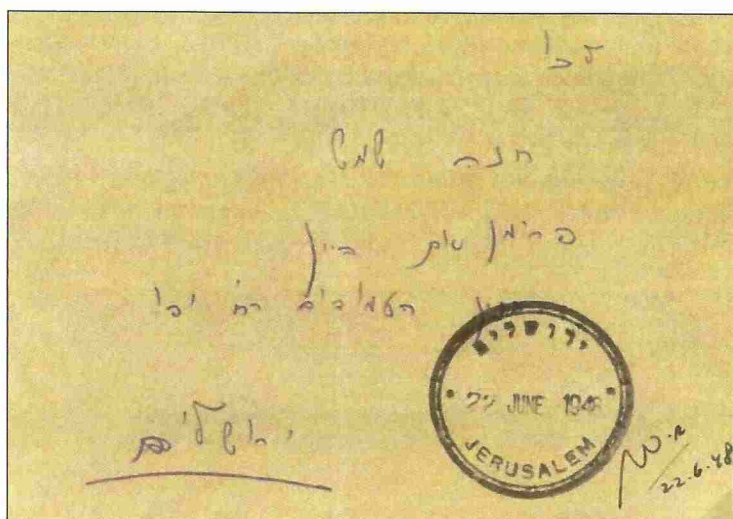 לכב'
חנה שמש
פרימן את ביין
העמודים רח' יפו
ירושלים
ירושלים
22 JUNE 1948
JERUSALEM
22.6.48